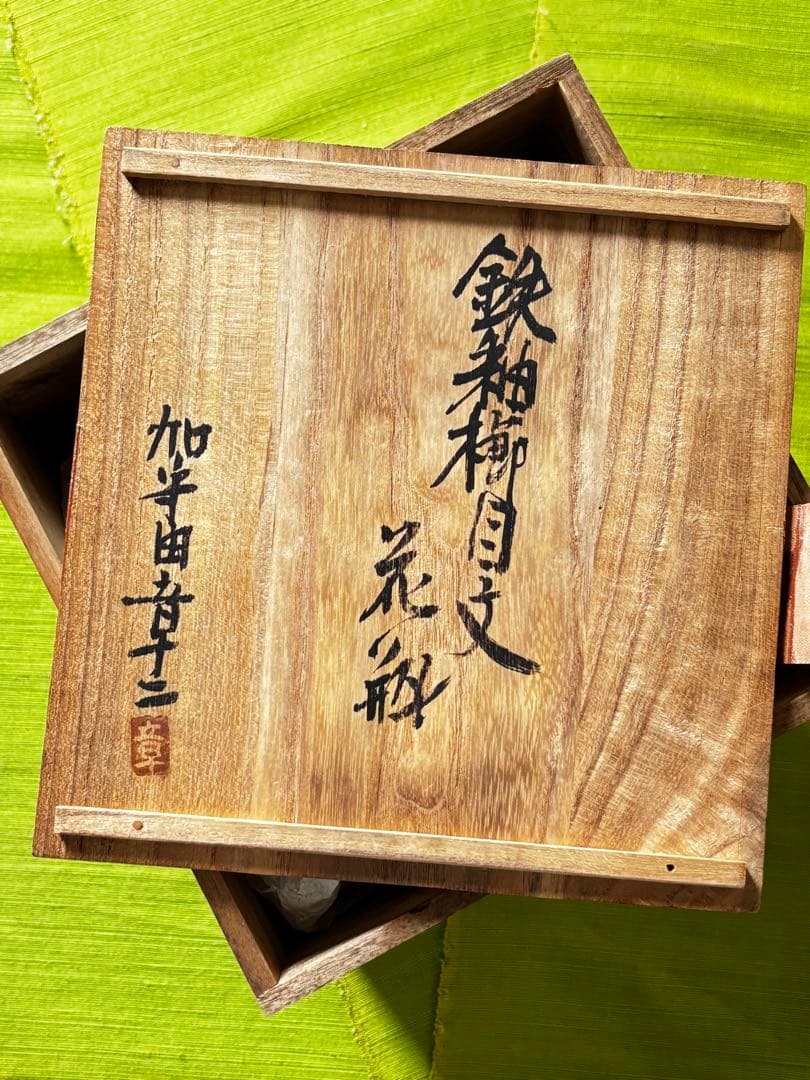 鉄釉櫛目文
花瓶
加守田章二
章